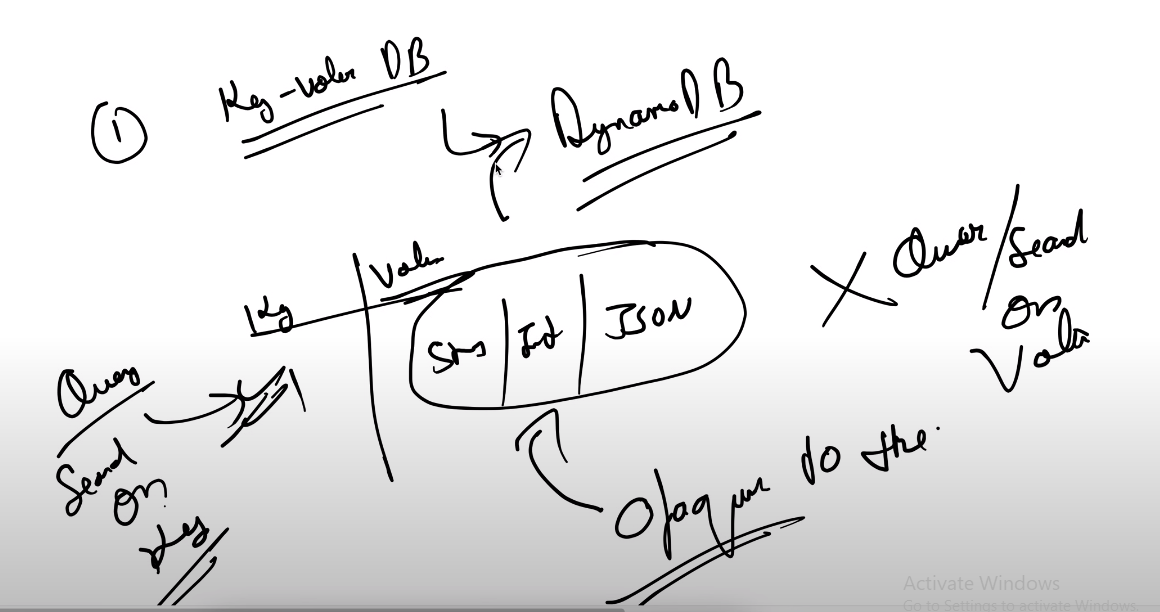 ① Key-Value DB
DynamoDB
Key
Value
Int
JSON
Query
Search
on
key
Query/Search
on
Value
Opaque to the
Activate Windows
Go to Settings to activate Windows.